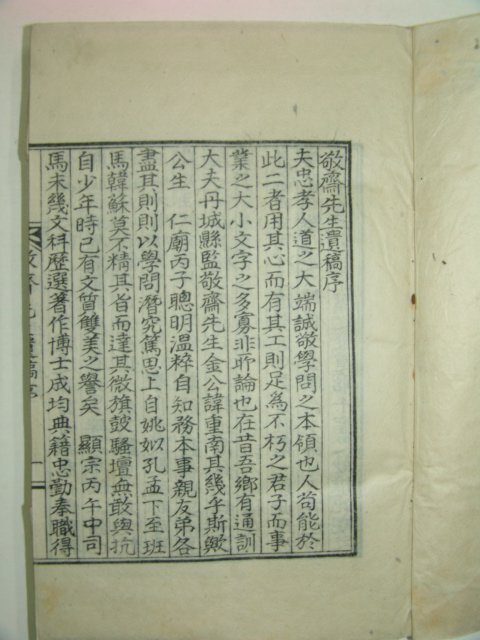 敬齋先生遺稿序
夫忠孝人道之大端誠敬學問之本領也人苟能於
此二者用其心而有其工則足為不朽之君子而事
業之大小文字之多寡非所論也在昔吾鄉有通訓
大夫丹城縣監敬齋先生金公諱重南其幾乎斯歟
公生 仁廟丙子聰明溫粹自知務本事親友弟各
盡其則則以學問潛究篤思上自姚姒孔孟下至班
馬韓蘇莫不精其旨而達其微旗鼓騷壇無敢與抗
自少年時已有文質雙美之譽矣 顯宗丙午中司
馬未幾文科歷選著作博士成均典籍忠勤奉職得